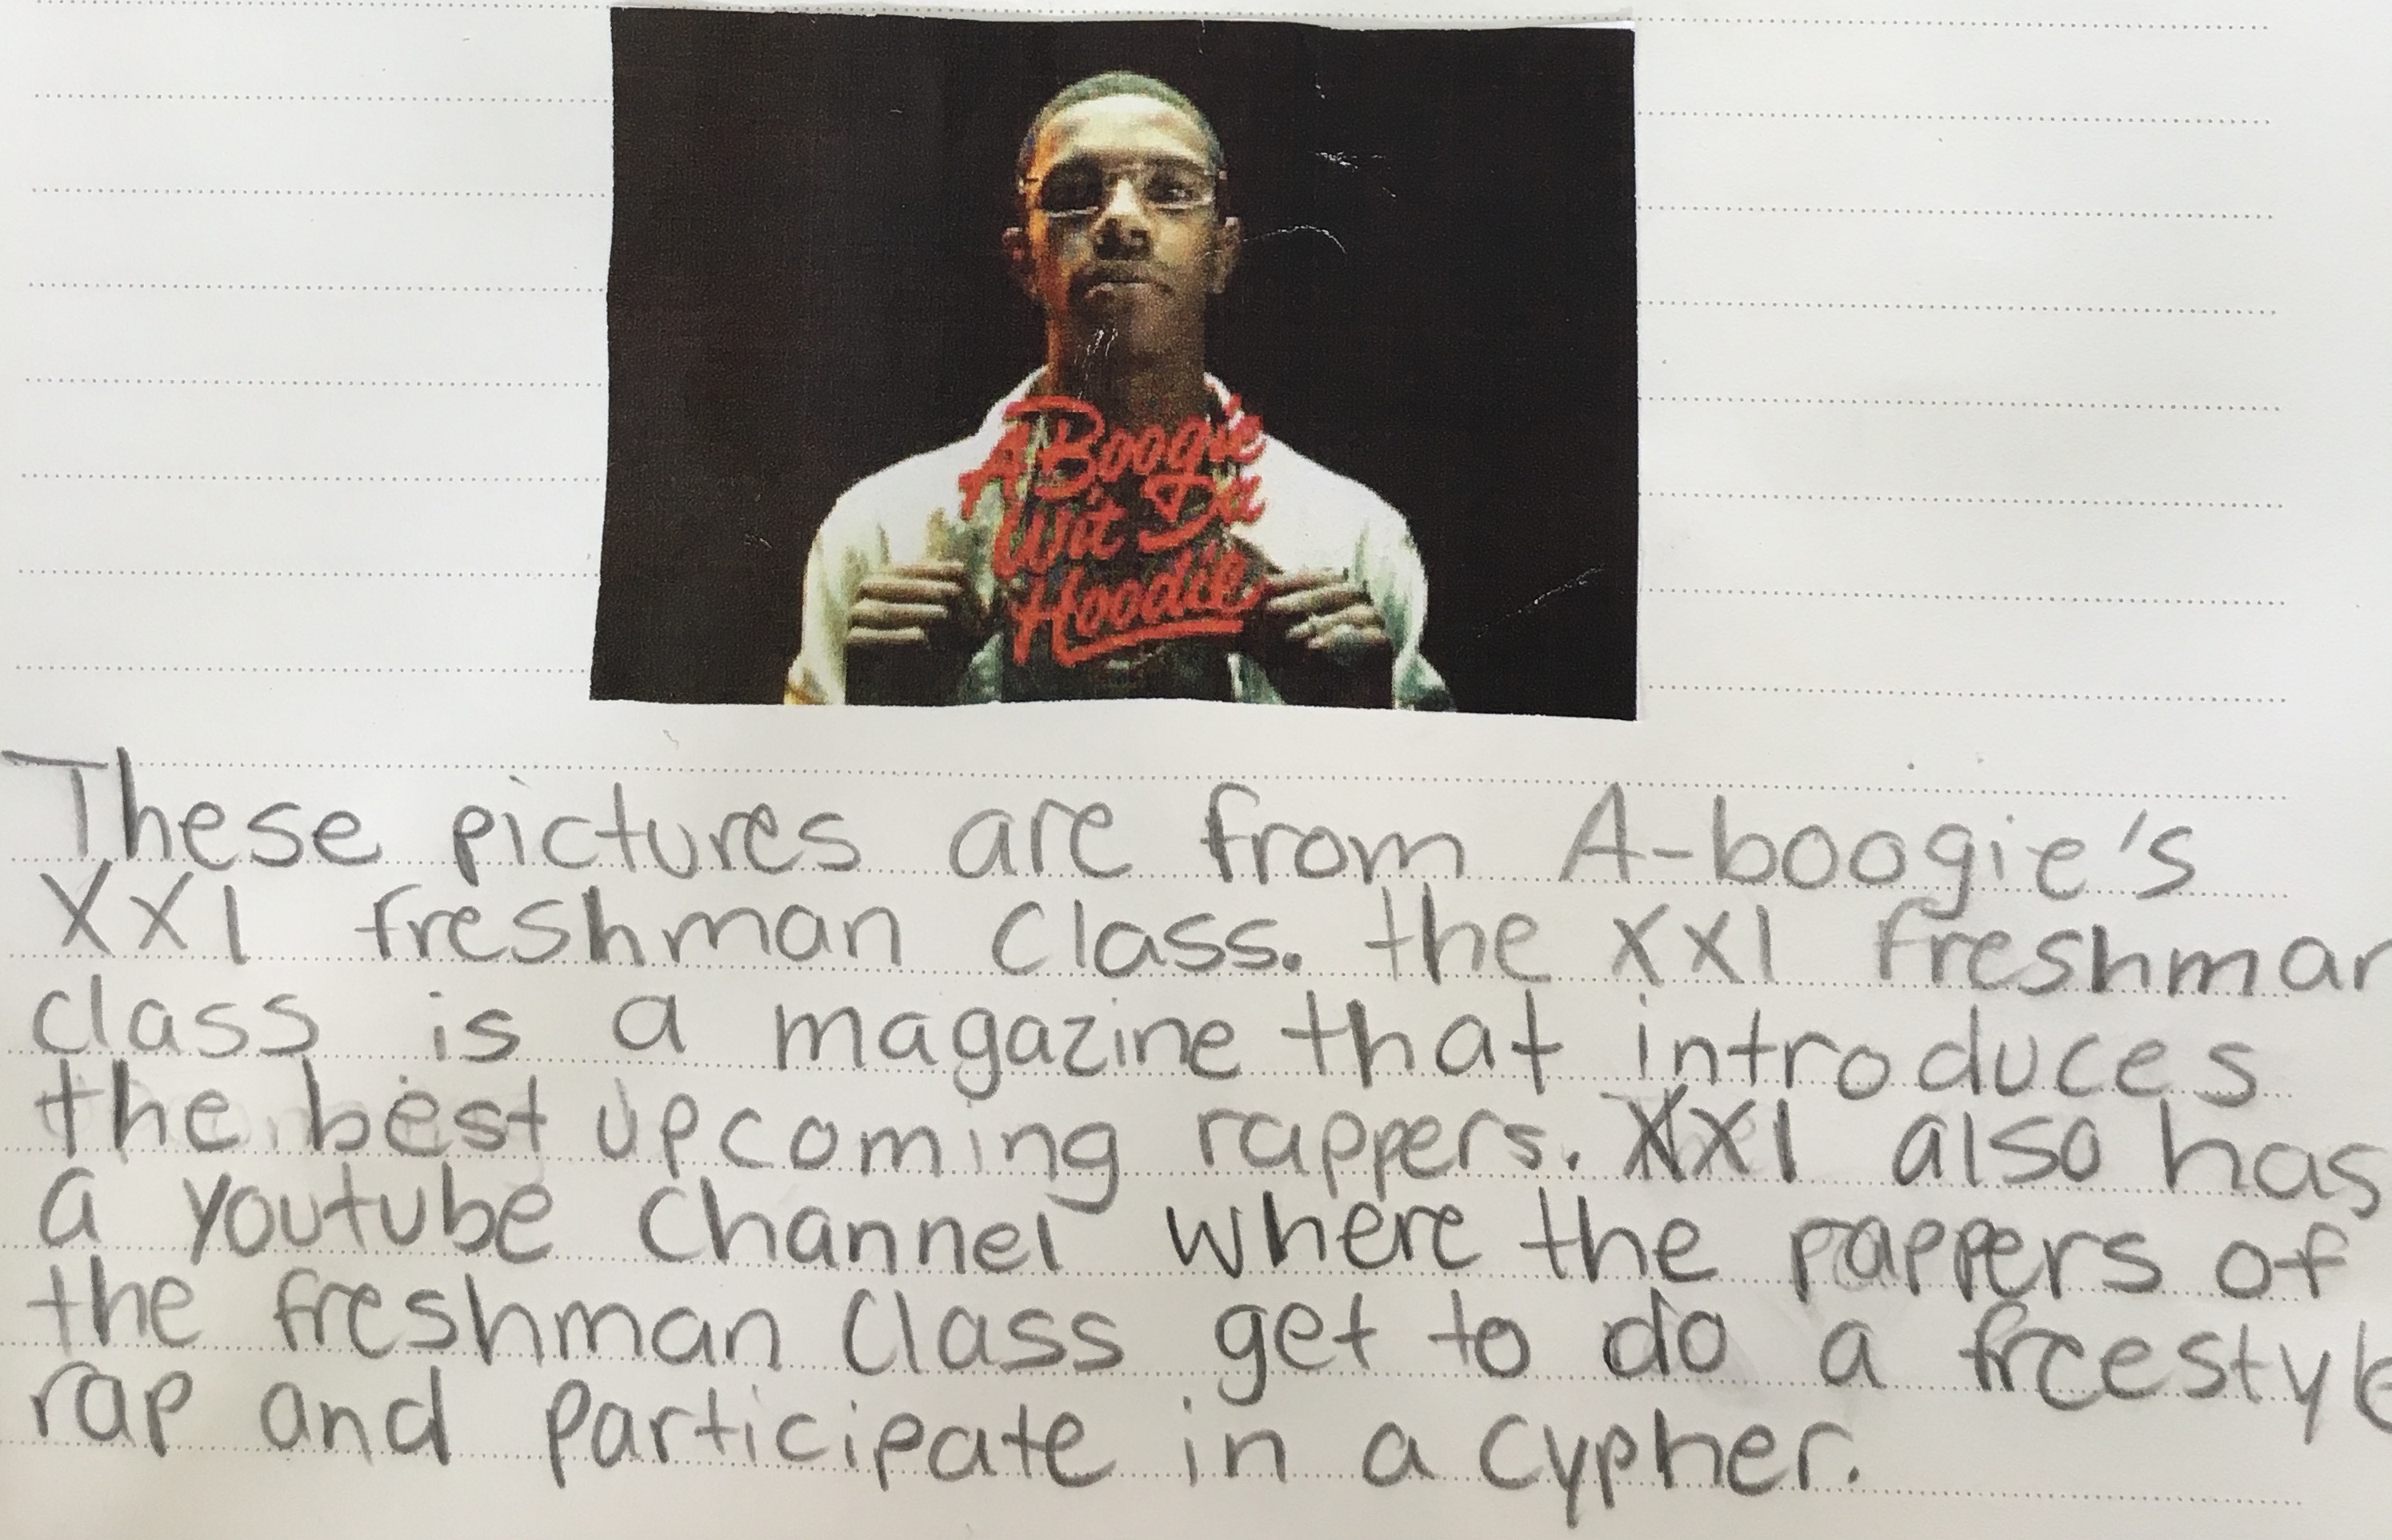 A Boogie
Wit Da
Hoodie
These pictures are from A-boogie's
XXl freshman class. the XXl freshman
class is a magazine that introduces
the best upcoming rappers. XXl also has
a youtube channel where the rappers of
the freshman class get to do a freestyle
rap and participate in a cypher.